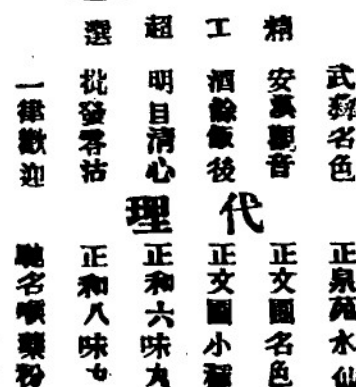 精工超選
武彝名色
安溪觀音
酒餘飯後
明目清心
批發零沽
一律歡迎
代理
正泉苑水仙
正文圃名色
正文圃小種
正和六味丸
正和八味
馳名喉藥粉